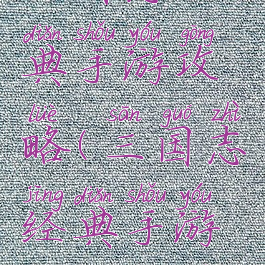 diǎn shǒu yóu gōng
典手游攻
lüè sān guó zhì
略(三国志
jīng diǎn shǒu yóu
经典手游